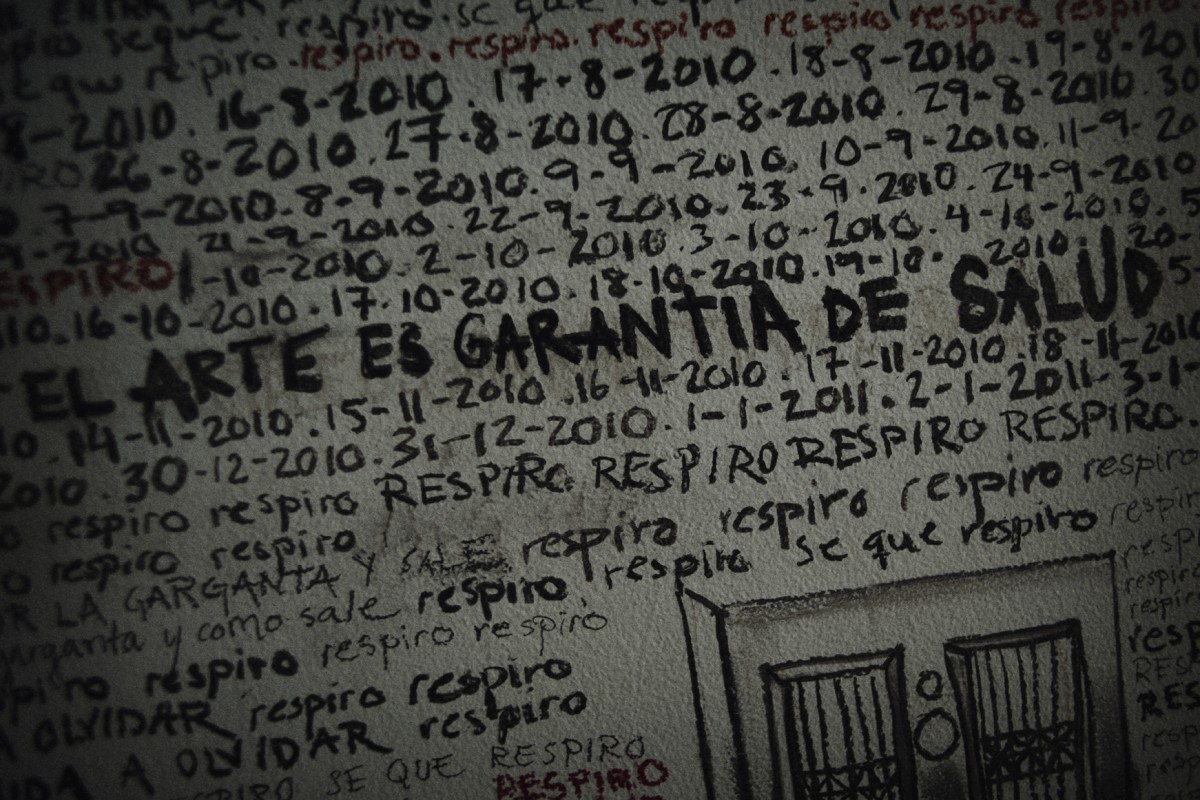 ENTRA POR respiro. se que
respiro segue. respiro. respiro. respiro. respiro respiro respiro respiro
8-2010. 16-8-2010. 17-8-2010. 18-8-2010. 19-8-201
26-8-2010. 27-8-2010. 28-8-2010. 29-8-2010. 30
7-9-2010. 8-9-2010. 9-9-2010. 10-9-2010. 11-9-20
9-2010 21-9-2010. 22-9-2010. 23-9-2010. 24-9-2010
ESPIRO 1-10-2010. 2-10-2010. 3-10-2010. 4-10-2010. 5
10. 16-10-2010. 17.10-2010. 18-10-2010. 19-10-2010. 20-
EL ARTE ES GARANTIA DE SALUD
10. 14-11-2010. 15-11-2010. 16-11-2010. 17-11-2010. 18-11-2010
2010. 30-12-2010. 31-12-2010. 1-1-2011. 2-1-2011-3-1-
o respiro respiro RESPIRO RESPIRO RESPIRO RESPIRO.
o respiro respiro respiro respiro respiro respiro
OR LA GARGANTA Y SALE respiro se que respiro respiro
garganta y como sale respiro respiro
respiro respiro respiro respiro
A OLVIDAR respiro respiro
UDA A OLVIDAR respiro
RESPIRO SE QUE RESPIRO
RESPIRO